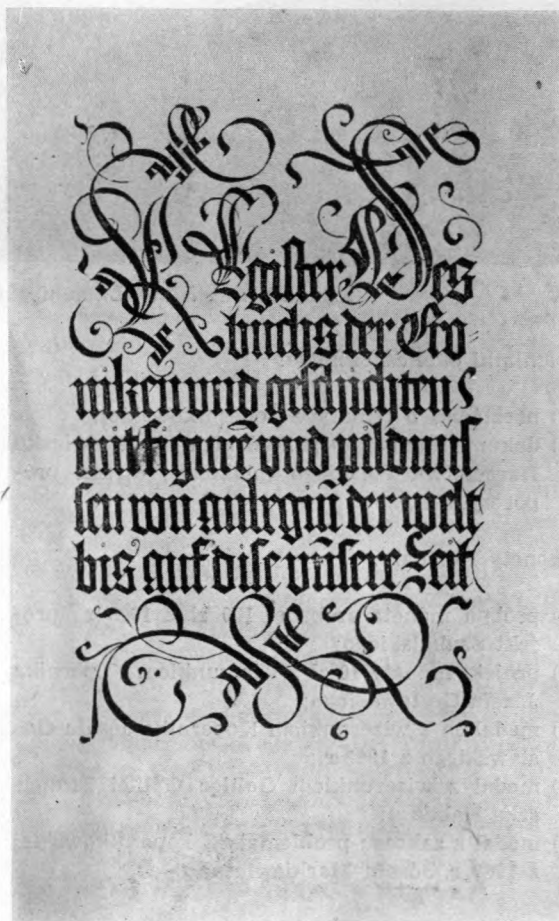 REgister Des
buchs der Cro-
niken vnd geschichten
mit figurē vnd pildnus
sen von anbegiñ der welt
bis auf dise vñsere Zeit